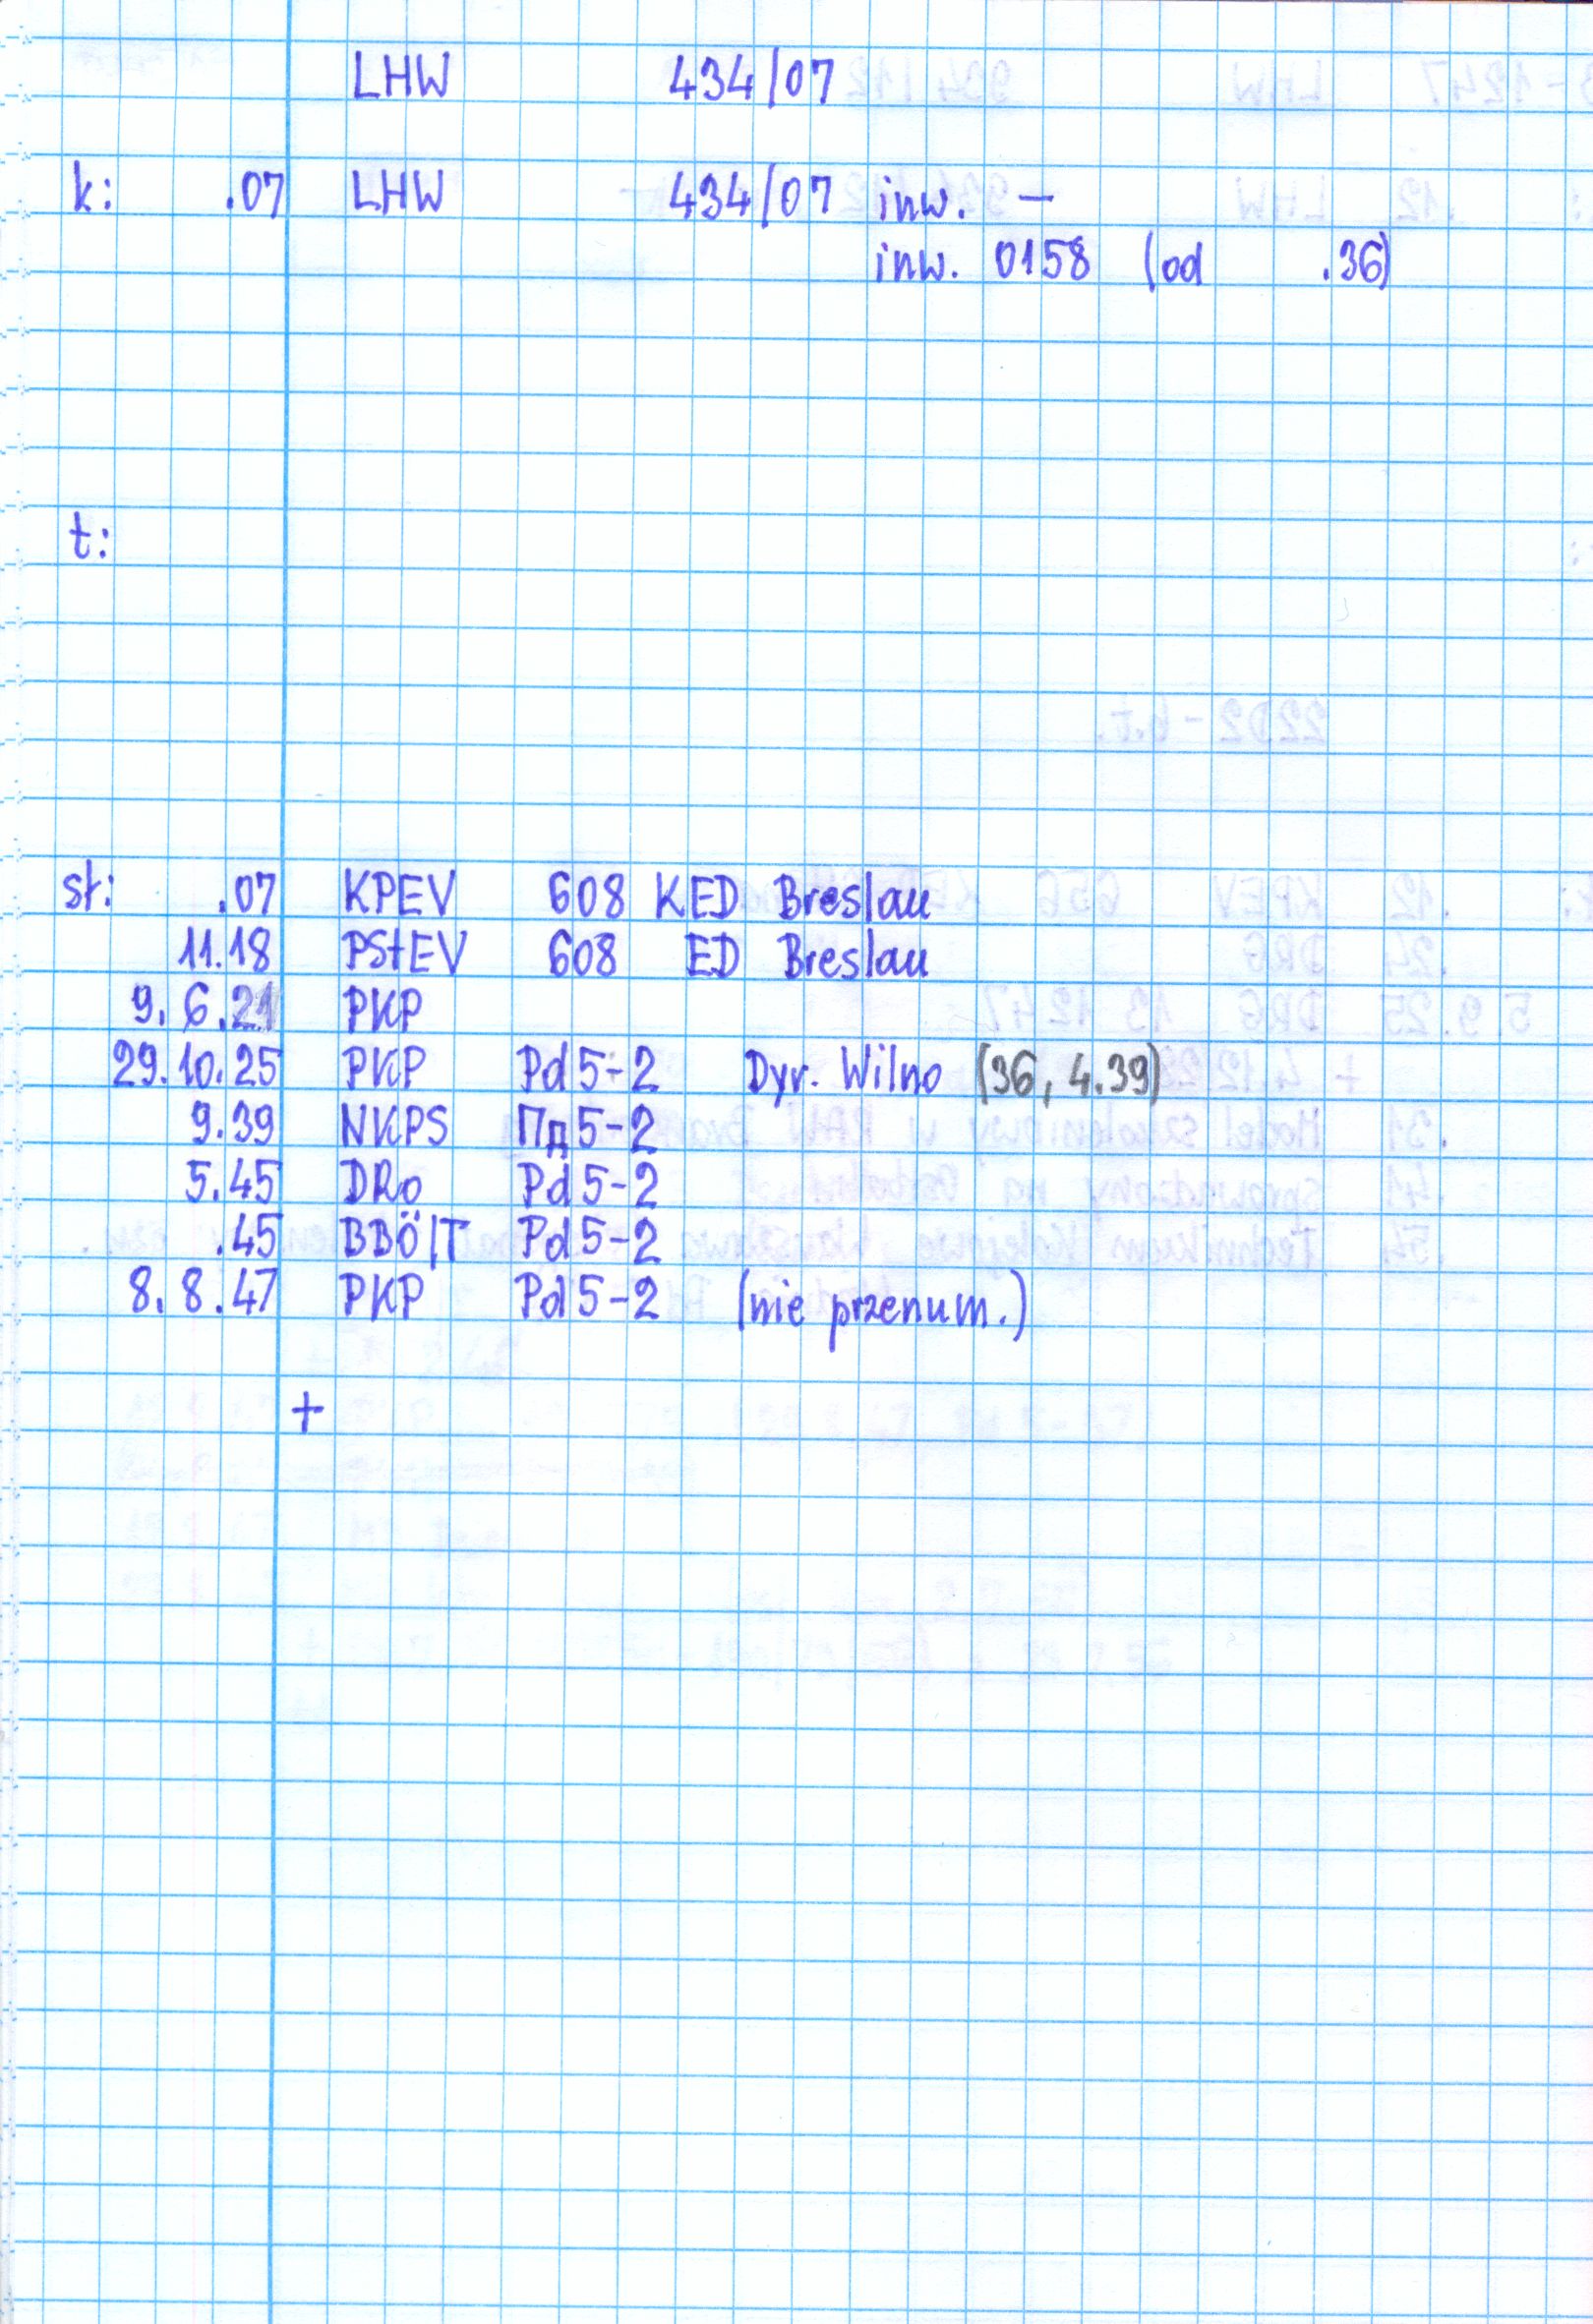 LHW 434/07
k: .07 LHW 434/07 inw. —
inw. 0158 (od .36)
t:
st: .07 KPEV 608 KED Breslau
11.18 PStEV 608 ED Breslau
9. 6.21 PKP
29.10.25 PKP Pd5-2 Dyr. Wilno (36, 4.39)
9.39 NKPS Пд5-2
5.45 DRo Pd5-2
.45 BBÖ/T Pd5-2
8. 8.47 PKP Pd5-2 (nie przenum.)
+